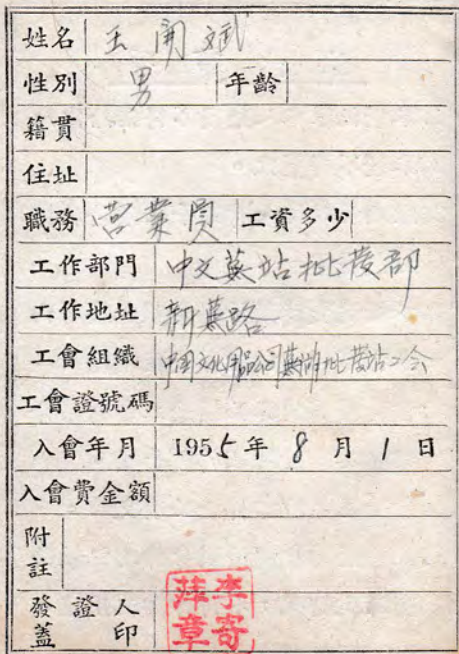 姓名 王開斌
性別 男 年齡
籍貫
住址
職務 营業員 工資多少
工作部門 中文蕪站批發部
工作地址 新蕪路
工會組織 中国文化用品公司蕪湖批發站工会
工會證號碼
入會年月 1955年8月1日
入會費金額
附註
發證人蓋印 李寄萍章